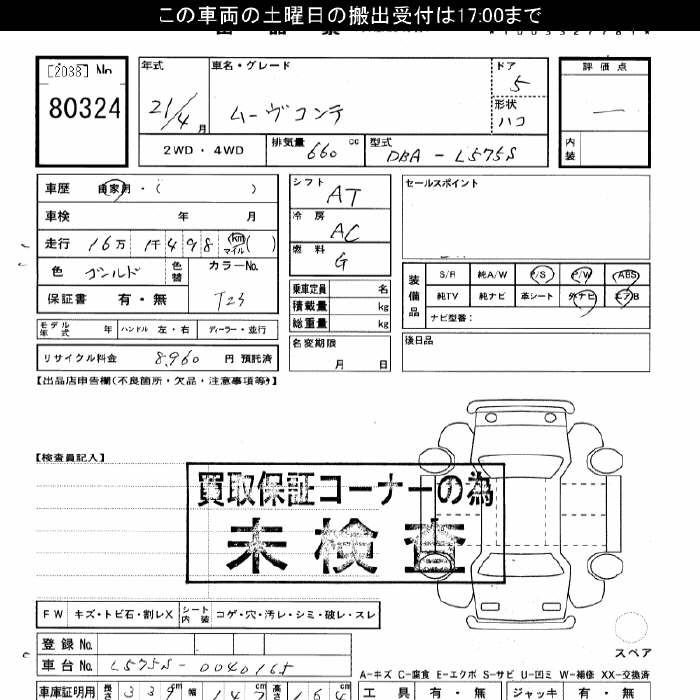 この車両の土曜日の搬出受付は17:00まで
[2038] No
80324
年式
21/4 月
車名・グレード
ムーヴコンテ
ドア
5
形状
ハコ
評価点
—
内装
2WD・4WD
排気量 660 cc
型式 DBA - L575S
車歴 自家用・( )
車検 年 月
走行 16万 1千498 km マイル ( )
色 ゴールド 色替
カラーNo.
T23
保証書 有・無
モデル年式 年 ハンドル 左・右 ディーラー・並行
リサイクル料金 8,960 円 預託済
シフト
AT
冷房
AC
燃料
G
乗車定員 名
積載量 kg
総重量 kg
名変期限
月 日
セールスポイント
装備品
S/R 純A/W P/S P/W ABS
純TV 純ナビ 革シート 外ナビ エアB
ナビ型番:
後日品
【出品店申告欄(不良箇所・欠品・注意事項等)】
【検査員記入】
買取保証コーナーの為
未検査
FW キズ・トビ石・割レX シート内装 コゲ・穴・汚レ・シミ・破レ・スレ
登録No.
車台No. L575S-0040165
スペア
A-キズ C-腐食 E-エクボ S-サビ U-凹ミ W-補修 XX-交換済
車庫証明用 長さ 339cm 幅 147 高さ 164cm
工具 有・無 ジャッキ 有・無